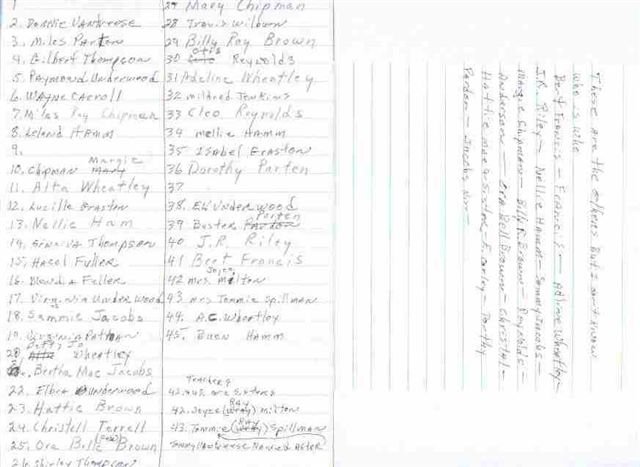 1
2. Donnie Vankrese
3. Miles Parten
4. Gilbert Thompson
5. Raymond Underwood
6. Wayne Carroll
7. Miles Ray Chipman
8. Leland Hamm
9.
Margie
10. Chipman Mary
11. Alta Wheatley
12. Lucille Eraston
13. Nellie Ham
14. Thompson
15. Hazel Fuller
16. Fuller
17. Virginia Underwood
18. Sammie Jacobs
19. Virginia
Betty Jo
20 Wheatley
Bertha Mae Jacobs
22. Elbra Underwood
23. Hattie Brown
24. Christell Terrell
25. Ora Belle Brown
26. Shirley Thompson
27 Mary Chipman
28 Travis Wilburn
29 Billy Ray Brown
Otis
30 Reynolds
31 Adeline Wheatley
32 mildred Jenkins
33 Cleo Reynolds
34 mellie Hamm
35 Isabel Eraston
36 Dorothy Parten
37
38. Eli Underwood
Parten
39 Buster
40 J.R. Riley
41 Bert Francis
Joyce
42 mrs. milton
43 mrs Tommie Spillman
44. A.C. Wheatley
45. Buen Hamm
Teachers
42. are Sisters
Ray
42. Joyce (Wray) milton
Ray
43. Tommie (Wray) Spillman
Named After
These are the others But I don't Know
who is who
Bert Francis - Francis - Adline Wheatley -
J.R. Riley - Nellie Hamm - Sammy Jacobs -
Margie Shipman - Billy R. Brown - Reynolds -
Anderson - Ora Bell Brown - Christal -
Hattie Mae & Sister E. Corley - Dorthy
Parden - Jacobs